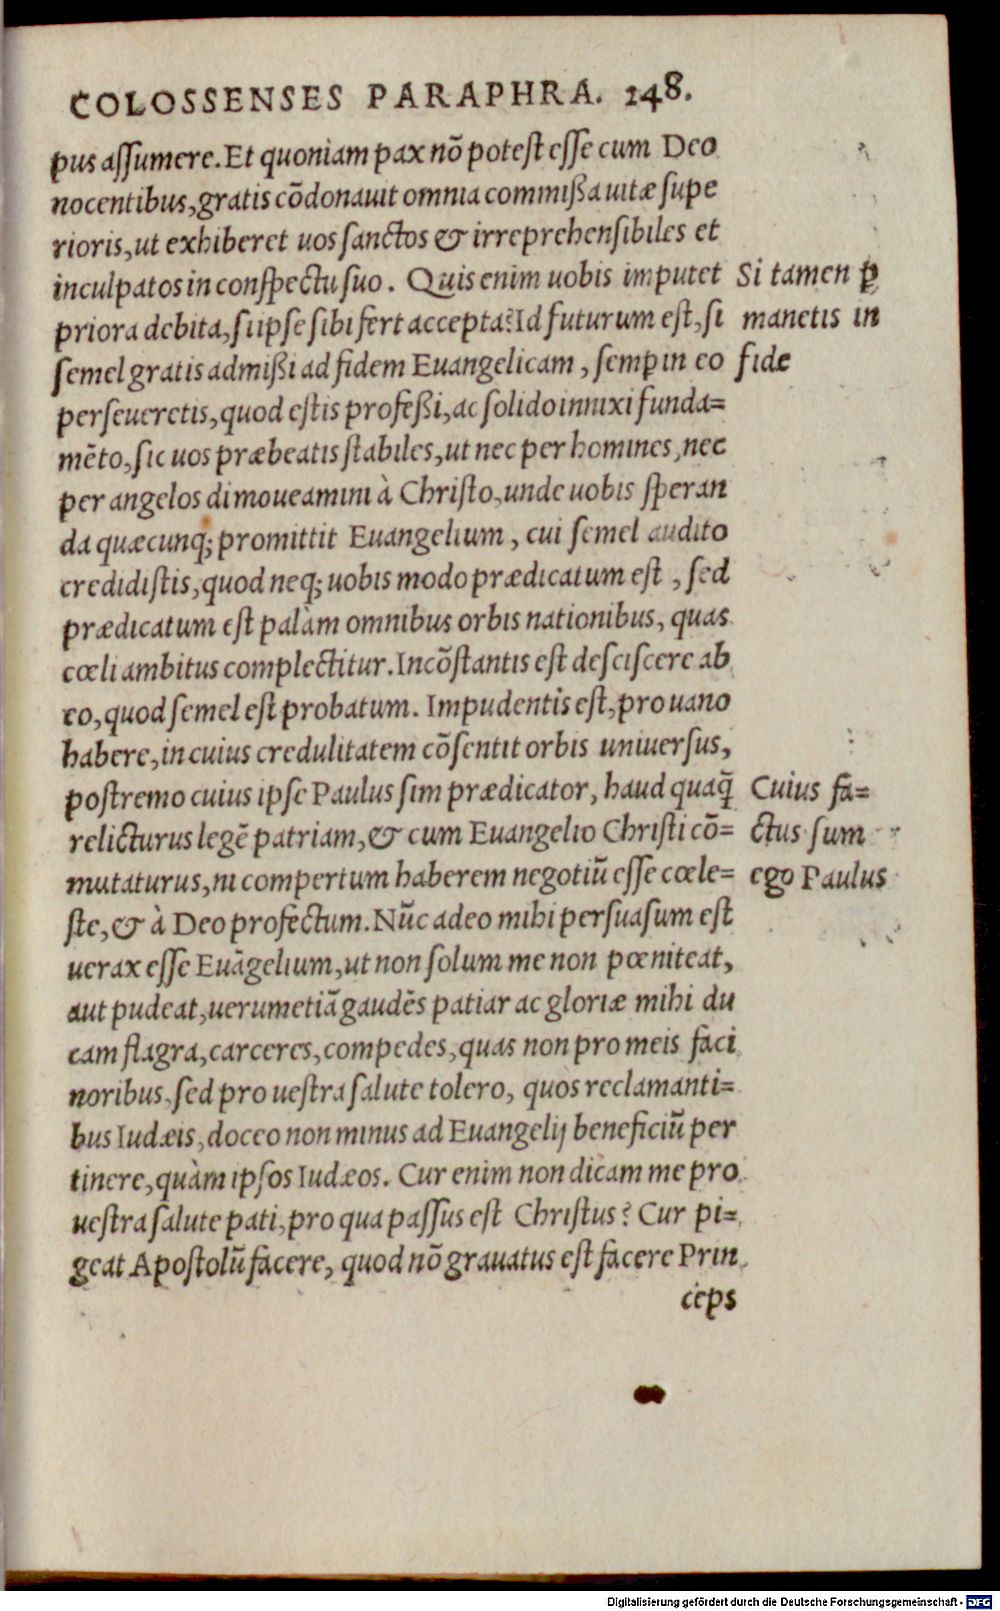 COLOSSENSES PARAPHRA. 248.
pus aſſumere. Et quoniam pax nõ poteſt eſſe cum Deo
nocentibus, gratis cõdonauit omnia commiſſa uitæ ſupe
rioris, ut exhiberet uos ſanctos & irreprehenſibiles et
inculpatos in conſpectu ſuo. Quis enim uobis imputet
priora debita, ſi ipſe ſibi fert accepta? Id futurum est, ſi
ſemel gratis admiſſi ad fidem Euangelicam, ſemꝑ in eo
perſeueretis, quod eſtis profeſſi, ac ſolido innixi funda=
mẽto, ſic uos præbeatis ſtabiles, ut nec per homines, nec
per angelos dimoueamini à Chriſto, unde uobis ſperan
da quæcunq; promittit Euangelium, cui ſemel audito
credidiſtis, quod neq; uobis modo prædicatum eſt, ſed
prædicatum eſt palàm omnibus orbis nationibus, quas
cœli ambitus complectitur. Incõſtantis eſt deſciſcere ab
eo, quod ſemel eſt probatum. Impudentis eſt, pro uano
habere, in cuius credulitatem cõſentit orbis uniuerſus,
poſtremo cuius ipſe Paulus ſim prædicator, haud quaq̃
relicturus legẽ patriam, & cum Euangelio Chriſti cõ=
mutaturus, ni compertum haberem negotiũ eſſe cœle=
ſte, & à Deo profectum. Nũc adeo mihi perſuaſum eſt
uerax eſſe Euãgelium, ut non ſolum me non pœniteat,
aut pudeat, uerumetiã gaudẽs patiar ac gloriæ mihi du
cam flagra, carceres, compedes, quas non pro meis faci
noribus, ſed pro ueſtra ſalute tolero, quos reclamanti=
bus Iudæis, doceo non minus ad Euangelij beneficiũ per
tinere, quàm ipſos Iudæos. Cur enim non dicam me pro
ueſtra ſalute pati, pro qua paſſus eſt Chriſtus? Cur pi=
geat Apoſtolũ facere, quod nõ grauatus eſt facere Prin
ceps
Si tamen ꝑ
manetis in
fide
Cuius fa=
ctus ſum
ego Paulus
Digitalisierung gefördert durch die Deutsche Forschungsgemeinschaft - DFG